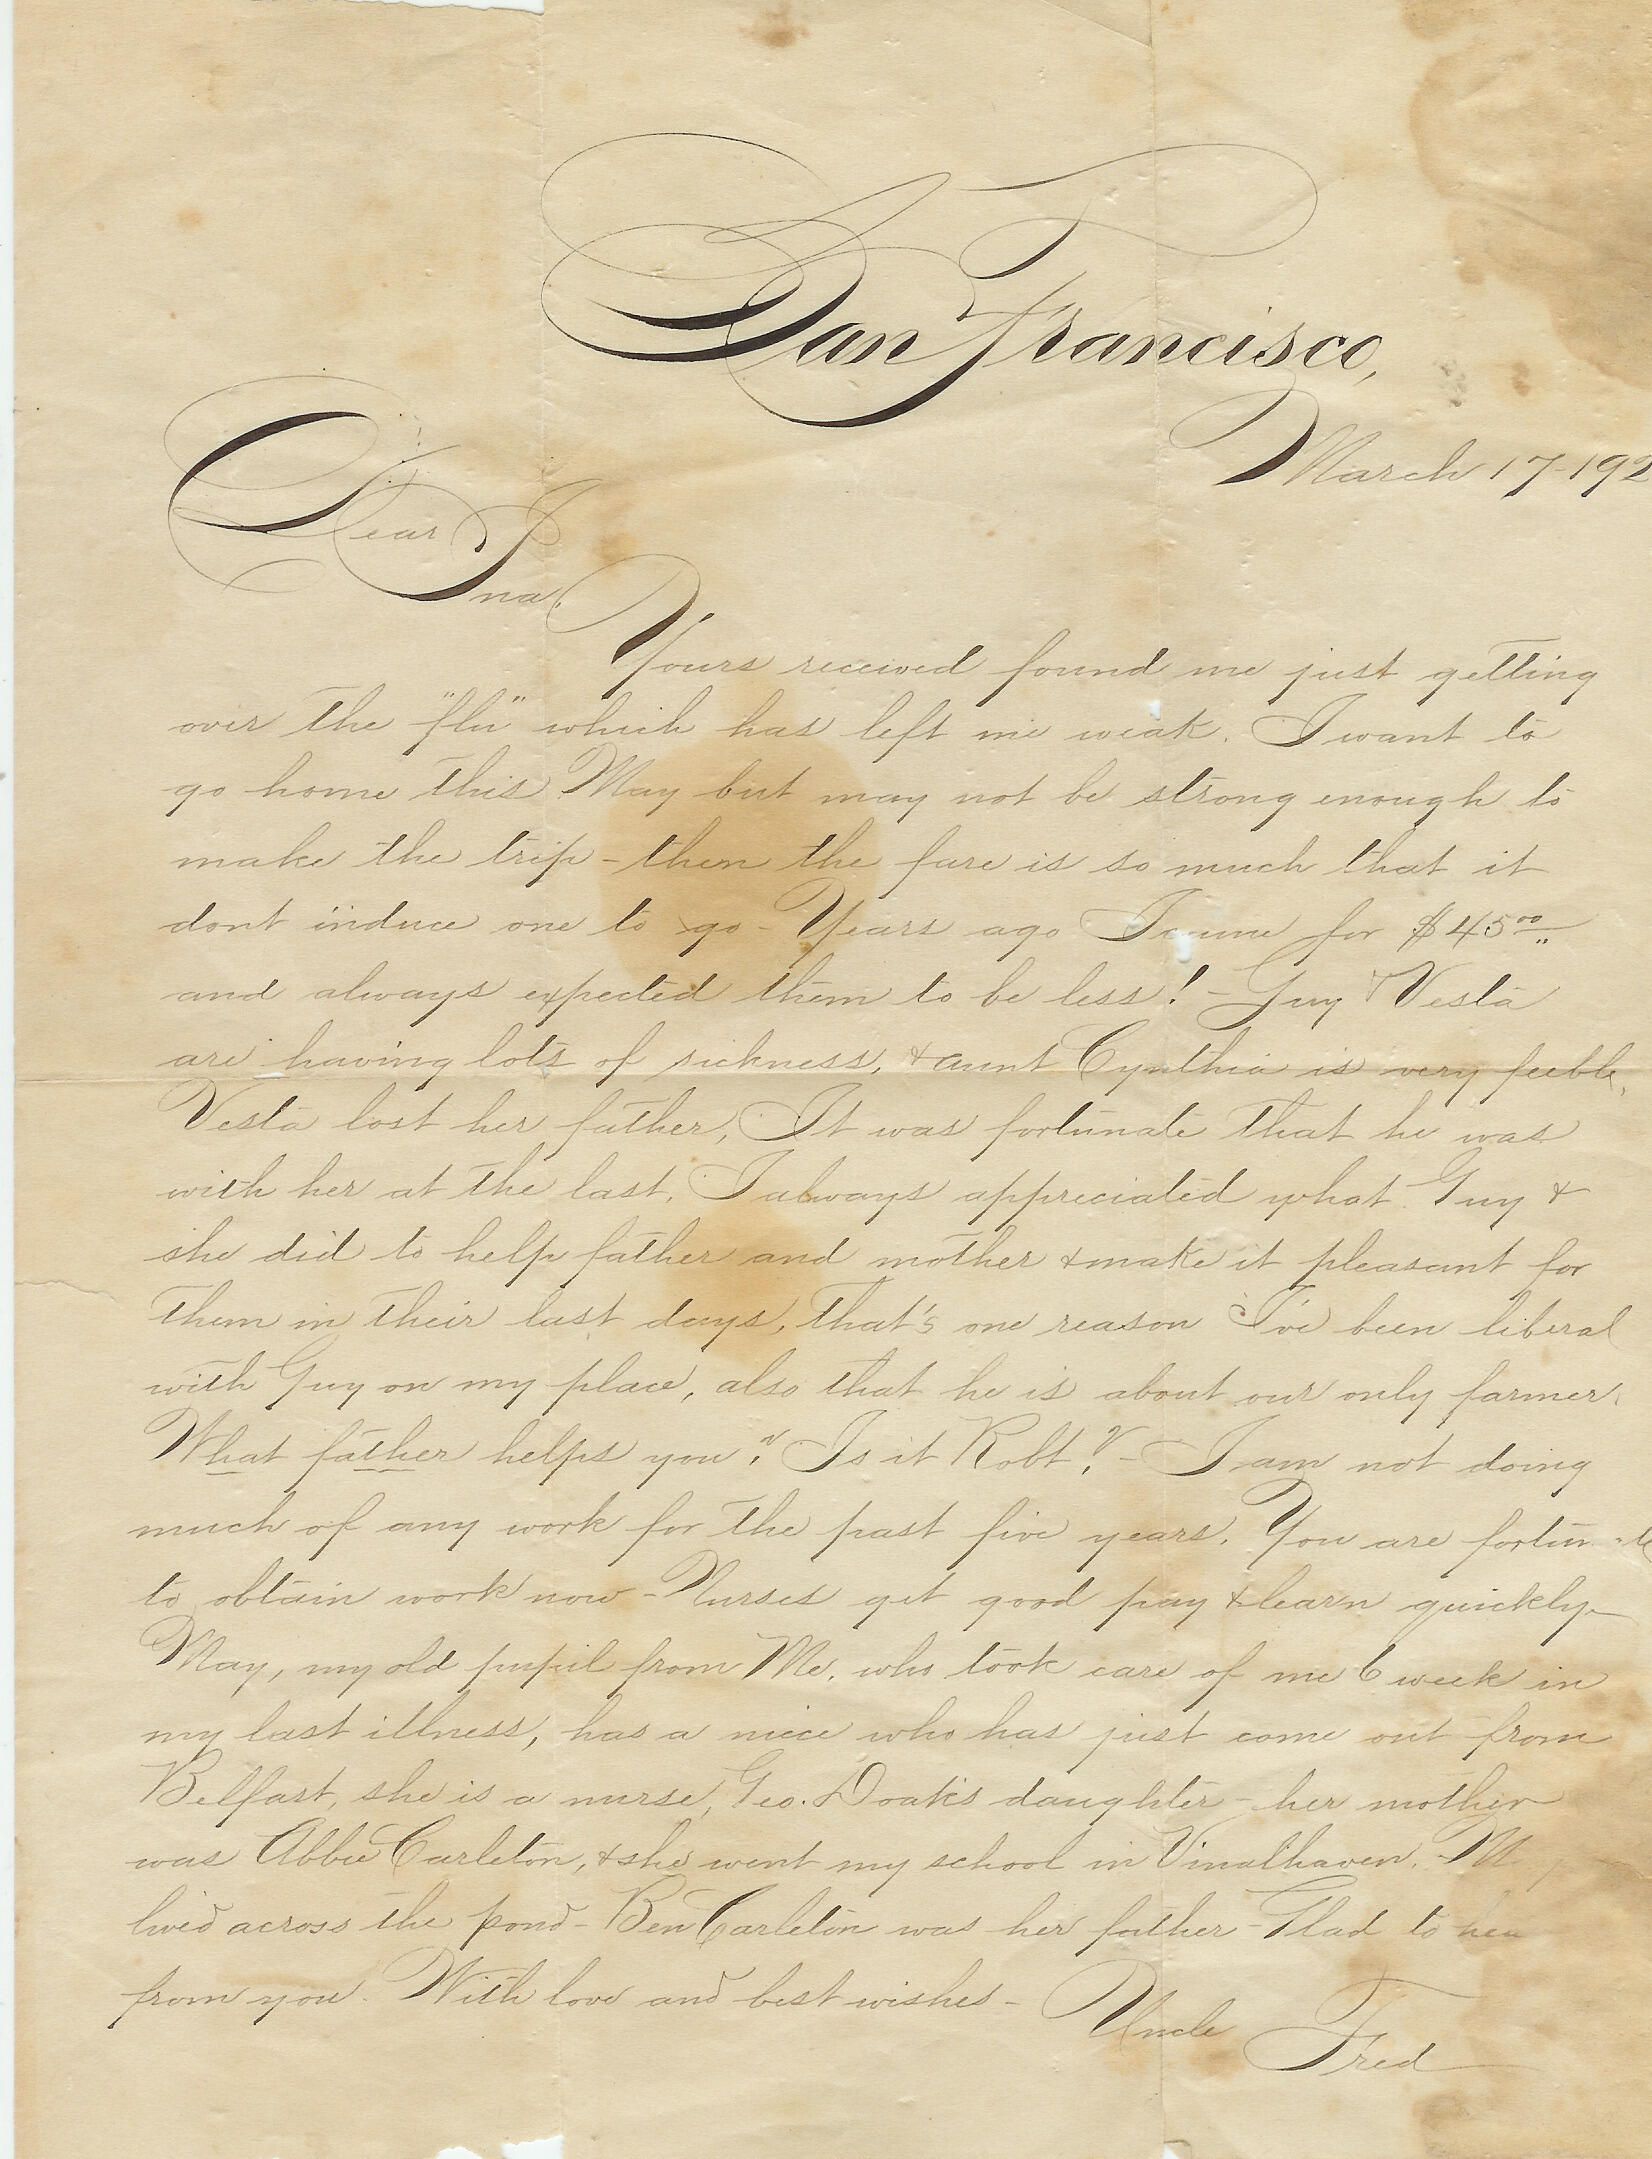 San Francisco,
March 17-192
Dear Ina,
Yours received found me just getting
over the "flu" which has left me weak. I want to
go home this May but may not be strong enough to
make the trip - then the fare is so much that it
dont induce one to go - Years ago I came for $45.00
and always expected them to be less! - Guy & Vesta
are having lots of sickness, & aunt Cynthia is very feeble,
Vesta lost her father, It was fortunate that he was
with her at the last. I always appreciated what Guy &
she did to help father and mother & make it pleasant for
them in their last days, that's one reason I've been liberal
with Guy on my place, also that he is about our only farmer.
What father helps you? Is it Robt? - I am not doing
much of any work for the past five years. You are
to obtain work now - Nurses get good pay & learn quickly -
May, my old pupil from Me. who took care of me 6 week in
my last illness, has a niece who has just come out from
Belfast, she is a nurse, Geo. Doak's daughter - her mother
was Abbie Carleton, & she went my school in Vinalhaven.
lived across the pond - Ben Carleton was her father - Glad to
from you. With love and best wishes -
Uncle Fred